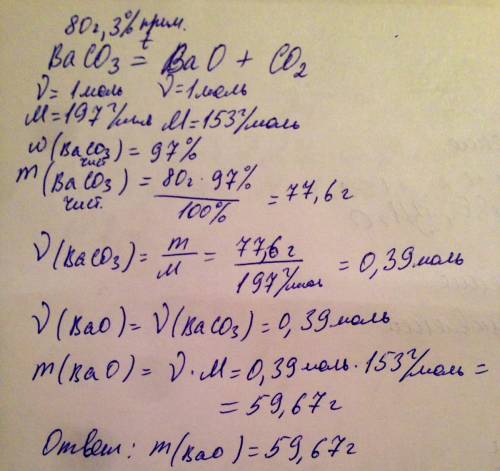 80г, 3% прим.
t
BaCO₃ = BaO + CO₂
ν = 1 моль ν = 1 моль
M = 197 г/моль M = 153 г/моль
ω (BaCO₃) = 97%
чист.
m (BaCO₃) = 80г · 97% / 100% = 77,6 г
чист.
ν (BaCO₃) = m / M = 77,6 г / 197 г/моль = 0,39 моль
ν (BaO) = ν (BaCO₃) = 0,39 моль
m (BaO) = ν · M = 0,39 моль · 153 г/моль =
= 59,67 г
Ответ: m (BaO) = 59,67 г